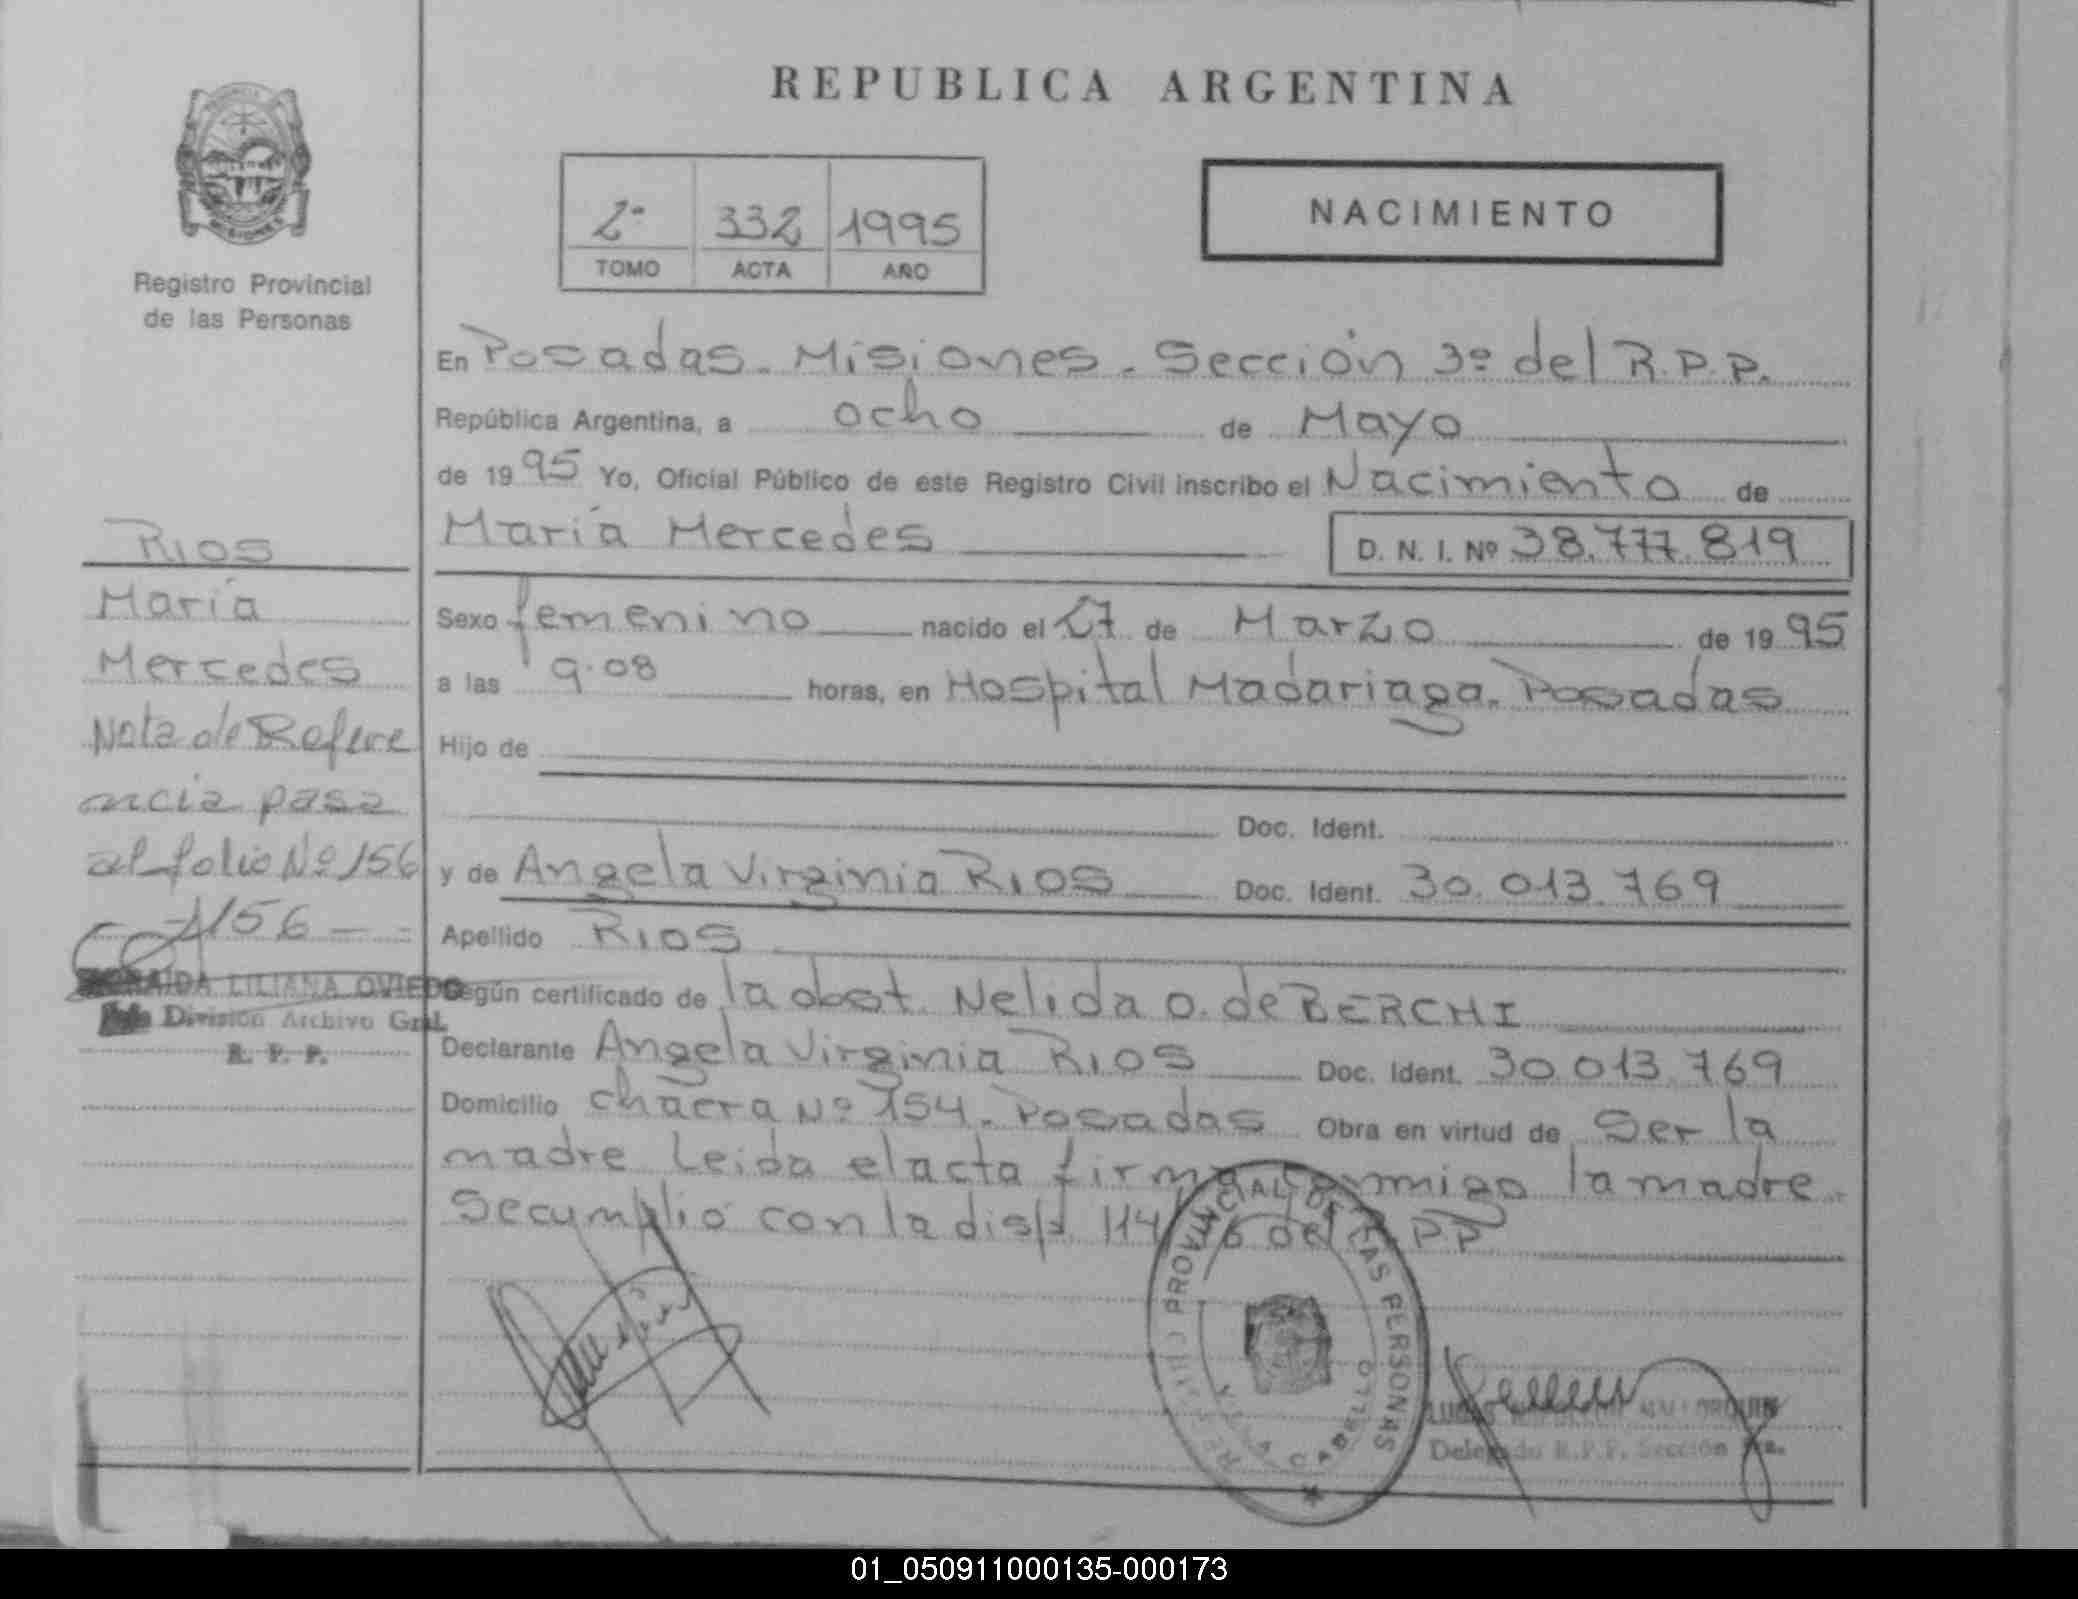 REPUBLICA ARGENTINA
2º 332 1995
TOMO ACTA AÑO
NACIMIENTO
Registro Provincial
de las Personas
En Posadas. Misiones. Sección 3º del R.P.P.
República Argentina, a ocho de Mayo
de 1995 Yo, Oficial Público de este Registro Civil inscribo el Nacimiento de
María Mercedes D. N. I. Nº 38.777.819
Sexo femenino nacido el 27 de Marzo de 1995
a las 9.08 horas, en Hospital Madariaga. Posadas
Hijo de
Doc. Ident.
y de Angela Virginia RIOS Doc. Ident. 30.013.769
Apellido RIOS
Según certificado de la obst. Nelida O. de BERCHI
Declarante Angela Virginia RIOS Doc. Ident. 30.013.769
Domicilio chacra Nº 154. Posadas Obra en virtud de Ser la
madre Leida el acta firma conmigo la madre.
Se cumplió con la disp. 114 del RPP
RIOS
María
Mercedes
Nota de Refere
ncia pasa
al folio Nº 156
156
LILIANA OVIEDO
División Archivo Gral.
R. P. P.
REGISTRO PROVINCIAL DE LAS PERSONAS
VILLA CABELLO
Delegado R.P.P. Sección 3ra.
01_050911000135-000173